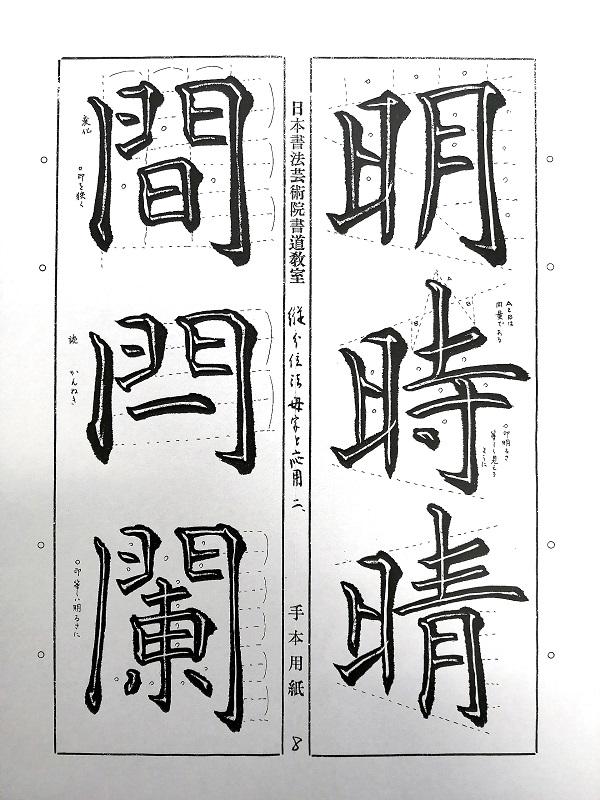 明
時
晴
AとBは
同量である
○印明るさ
等しく見える
ように
日本書法芸術院書道教室
縦分位法 母字と応用 二、
手本用紙
8
間
閂
闌
変化
○印を狭く
読 かんぬき
○印等しい明るさに